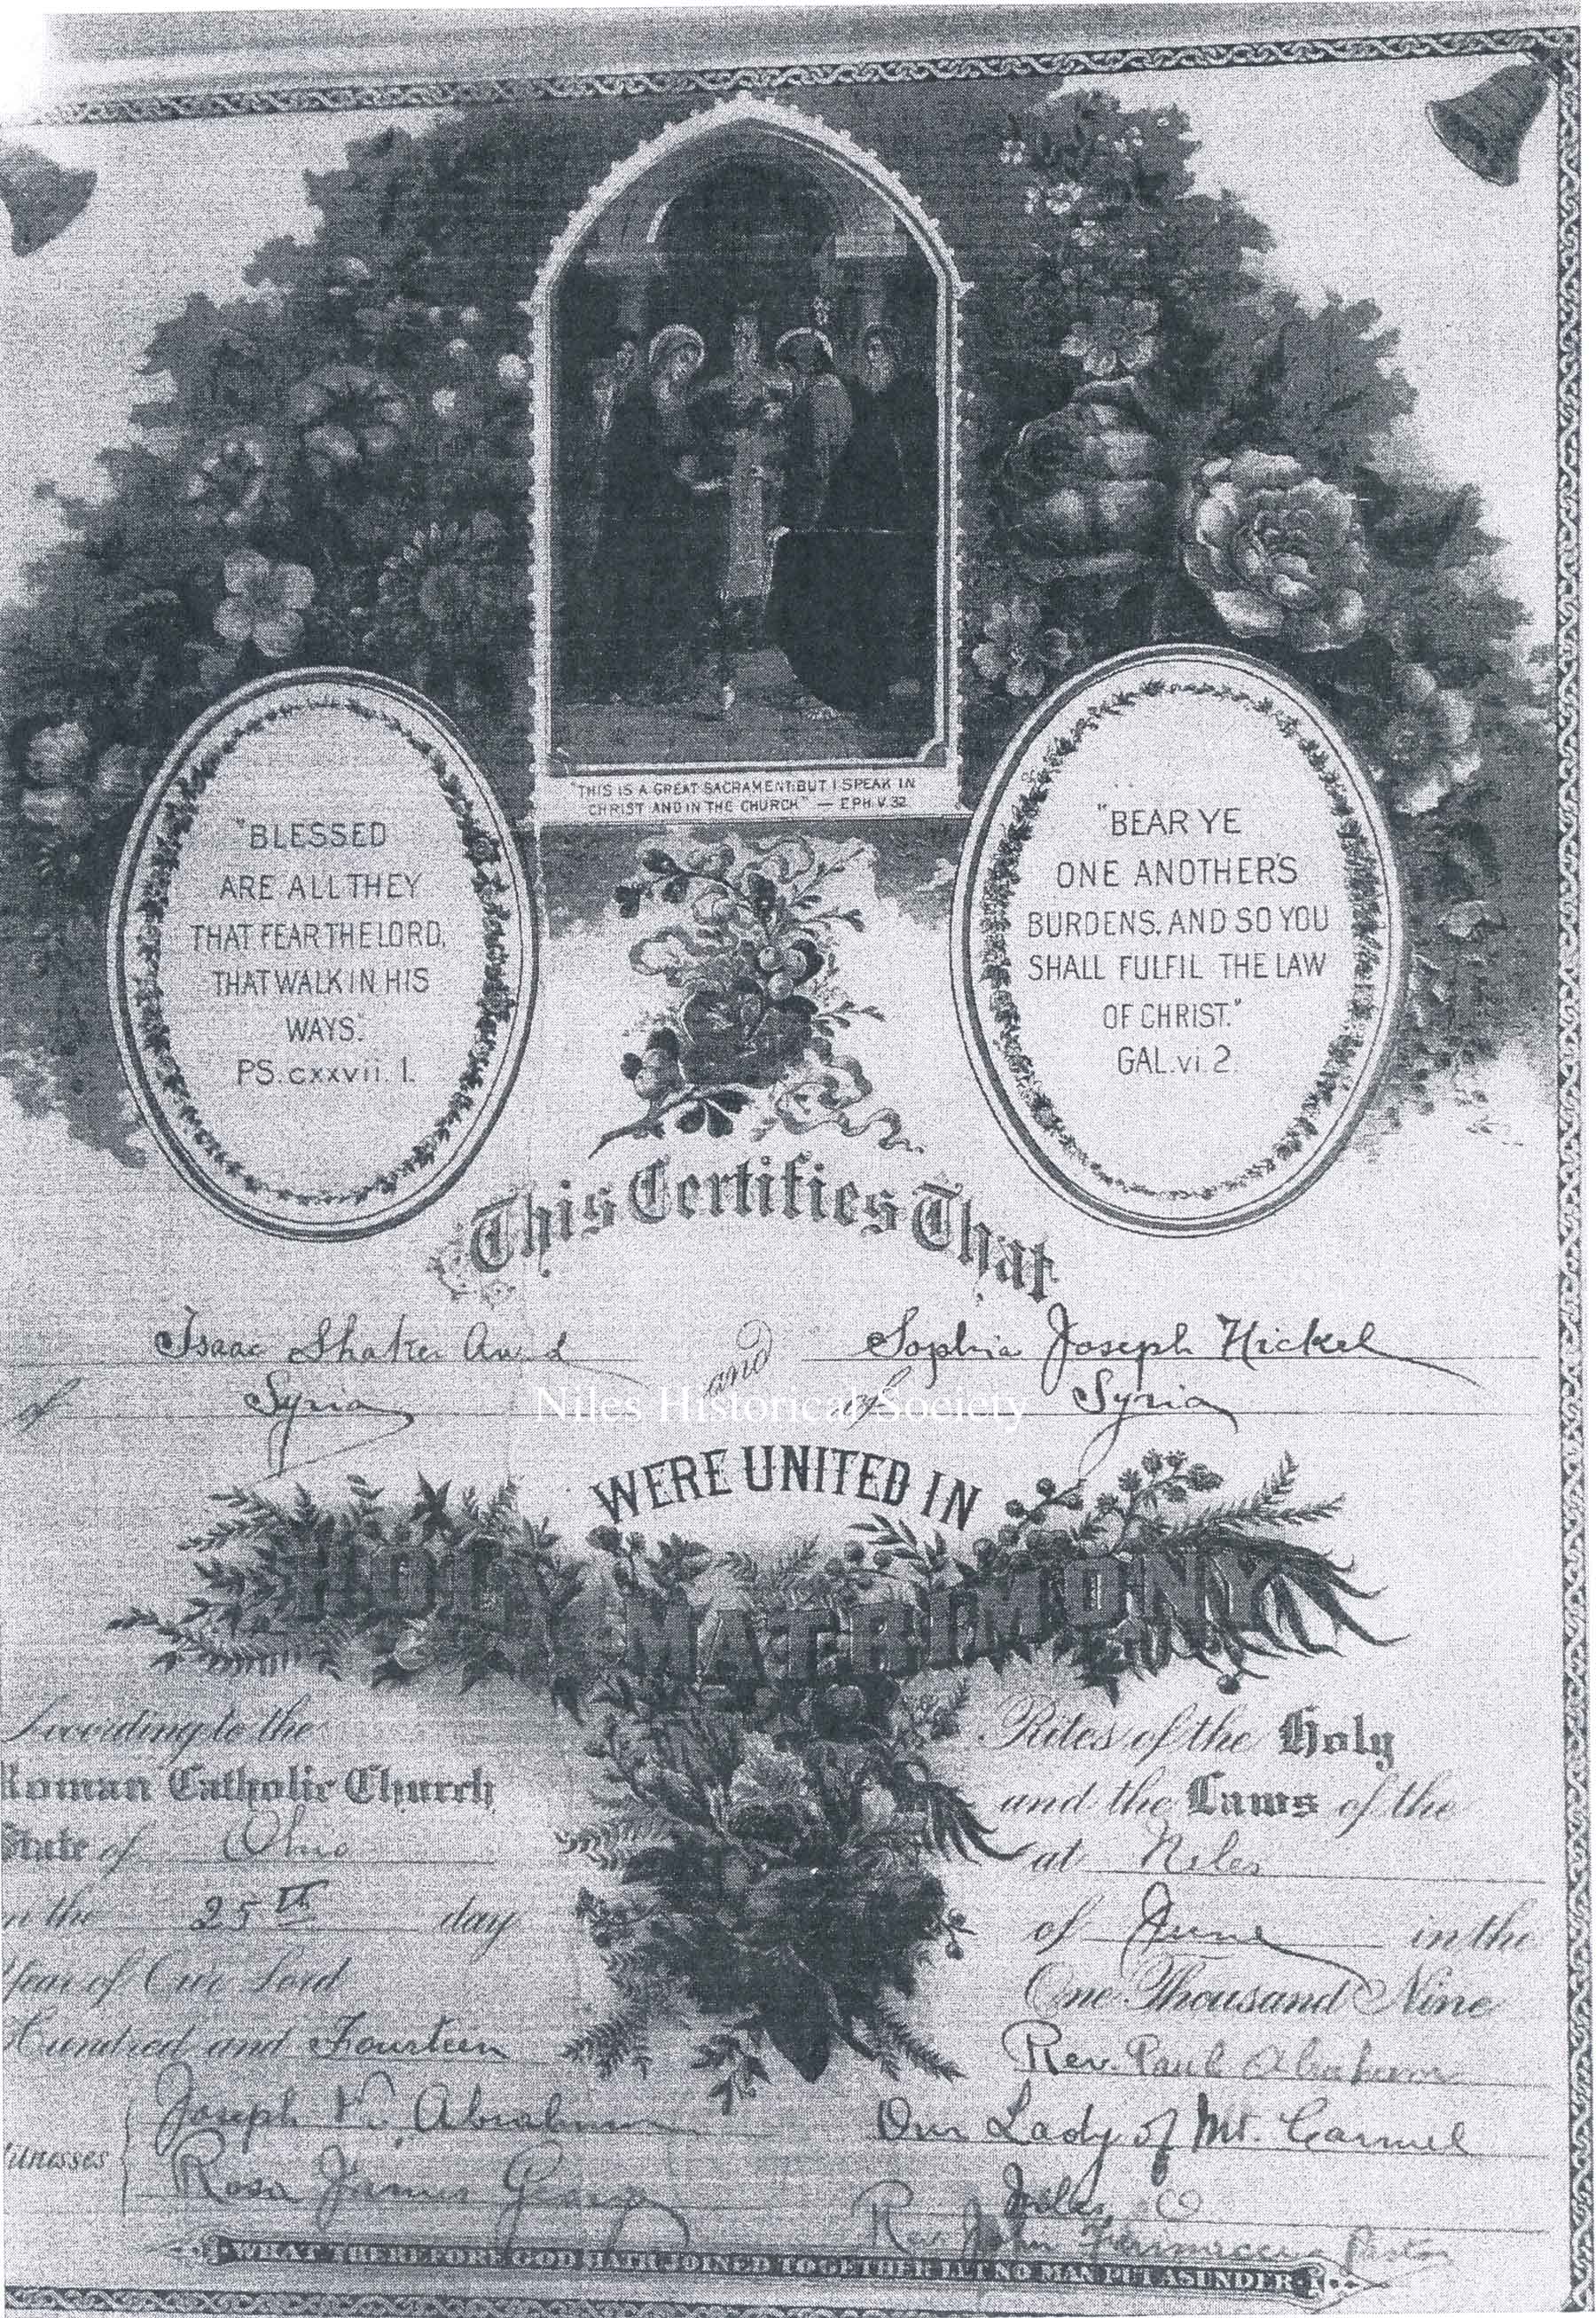 "THIS IS A GREAT SACRAMENT: BUT I SPEAK IN
CHRIST AND IN THE CHURCH" — EPH. V. 32.
"BLESSED
ARE ALL THEY
THAT FEAR THE LORD,
THAT WALK IN HIS
WAYS."
PS. cxxvii. 1.
"BEAR YE
ONE ANOTHER'S
BURDENS, AND SO YOU
SHALL FULFIL THE LAW
OF CHRIST."
GAL. vi. 2.
This Certifies That
Isaac Shaker Awad and Sophia Joseph Hickel
of Syria of Syria
Niles Historical Society
WERE UNITED IN
HOLY MATRIMONY
According to the Rites of the Holy
Roman Catholic Church and the Laws of the
State of Ohio at Niles
on the 25th day of June in the
Year of Our Lord One Thousand Nine
Hundred and Fourteen Rev. Paul Abraham
Witnesses Joseph K. Abraham Our Lady of Mt. Carmel
Rosa James George Niles, O
Rev. John Pastor
WHAT THEREFORE GOD HATH JOINED TOGETHER LET NO MAN PUT ASUNDER